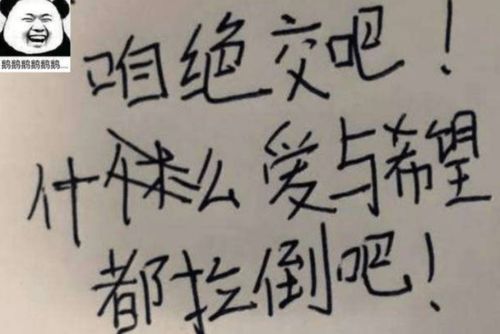 鹅鹅鹅鹅鹅鹅....
咱绝交吧！
什么爱与希望
都拉倒吧！